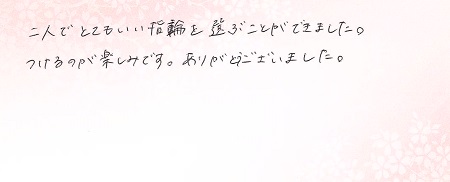 二人でとてもいい指輪を選ぶことができました。
つけるのが楽しみです。ありがとうございました。